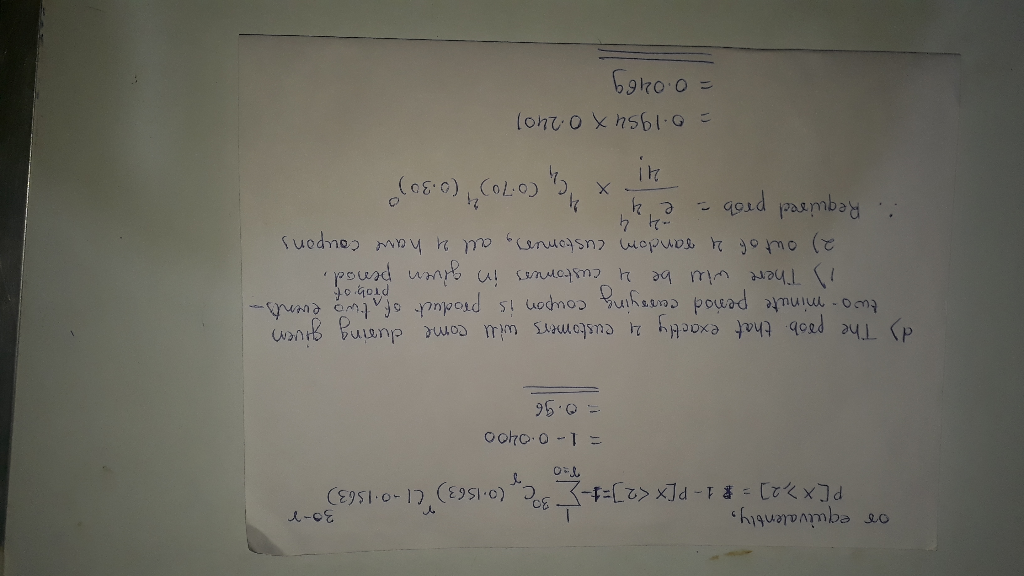 or equivalently,
P[X ≥ 2] = 1 - P[X < 2] = 1 - ∑_{r=0}^{1} ³⁰C_r (0.1563)^r (1-0.1563)^{30-r}
= 1 - 0.0400
= 0.96
d) The prob. that exactly 4 customers will come during given
two-minute period carrying coupon is product of prob. of two events-
1) There will be 4 customers in given period.
2) out of 4 random customers, all 4 have coupons
∴ Required prob = e^{-4} 4^4 / 4! × ⁴C₄ (0.70)^4 (0.30)^0
= 0.1954 × 0.2401
= 0.0469